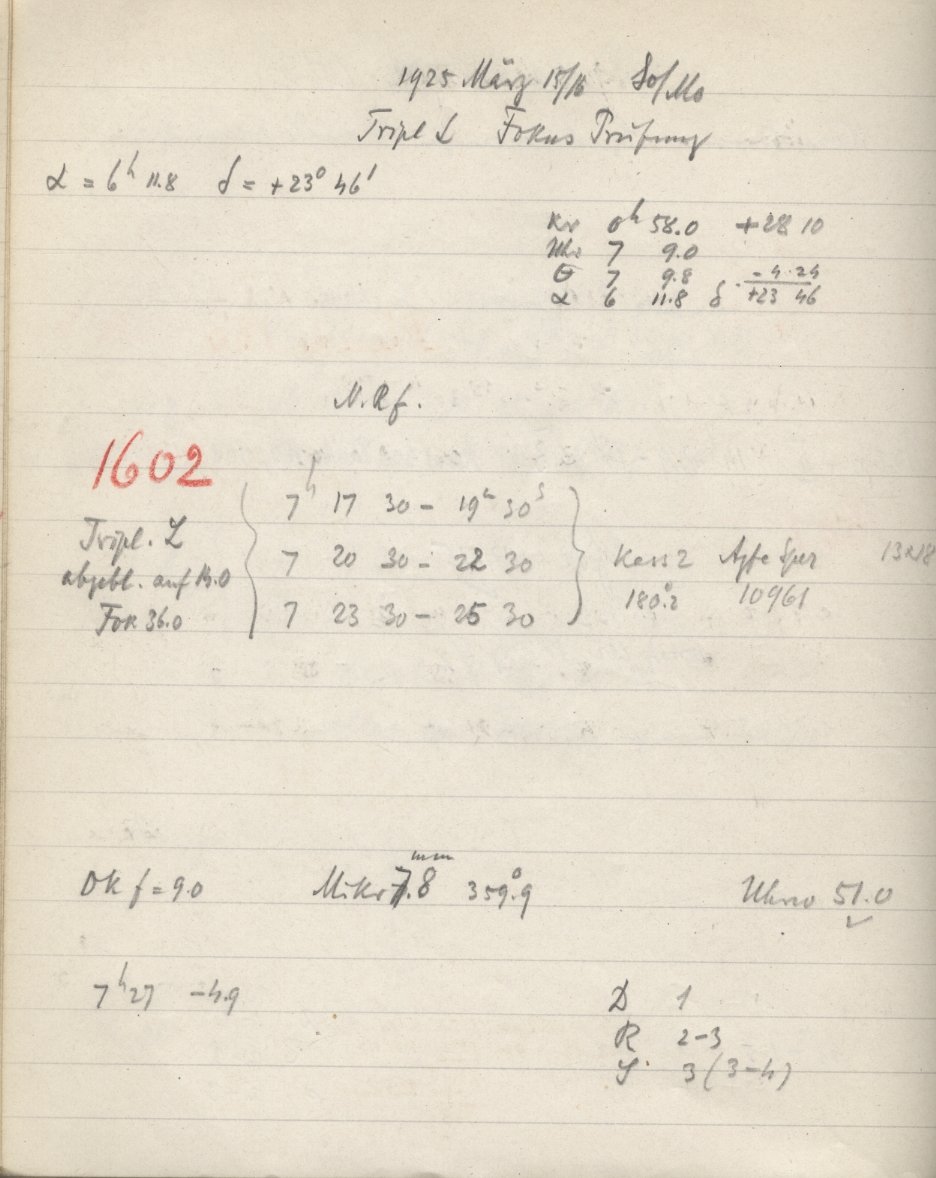 1925 März 15/16 So/Mo
Tripl L Fokus Prüfung
α = 6h 11.8 δ = +23° 46'
Kr 0h 58.0 +28 10
Uhr 7 9.0
θ 7 9.8 - 4 24
α 6 11.8 δ +23 46
N. Rf.
1602
7h 17 30 - 19m 30s
Tripl. L
7 20 30 - 22 30 Kass 2 Agfa Sper 13x18
abgebl. auf
180°.2 10961
Fok 36.0 7 23 30 - 25 30
Ok f = 9.0 Mikr 7.8 mm 359°.9 51.0
7h 27 -4.9
D 1
R 2-3
S 3 (3-4)